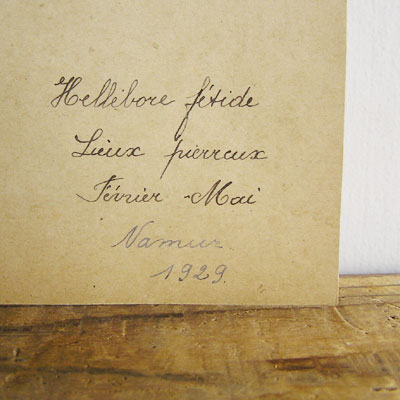 Hellébore fétide
Lieux pierreux
Février - Mai
Namur.
1929.